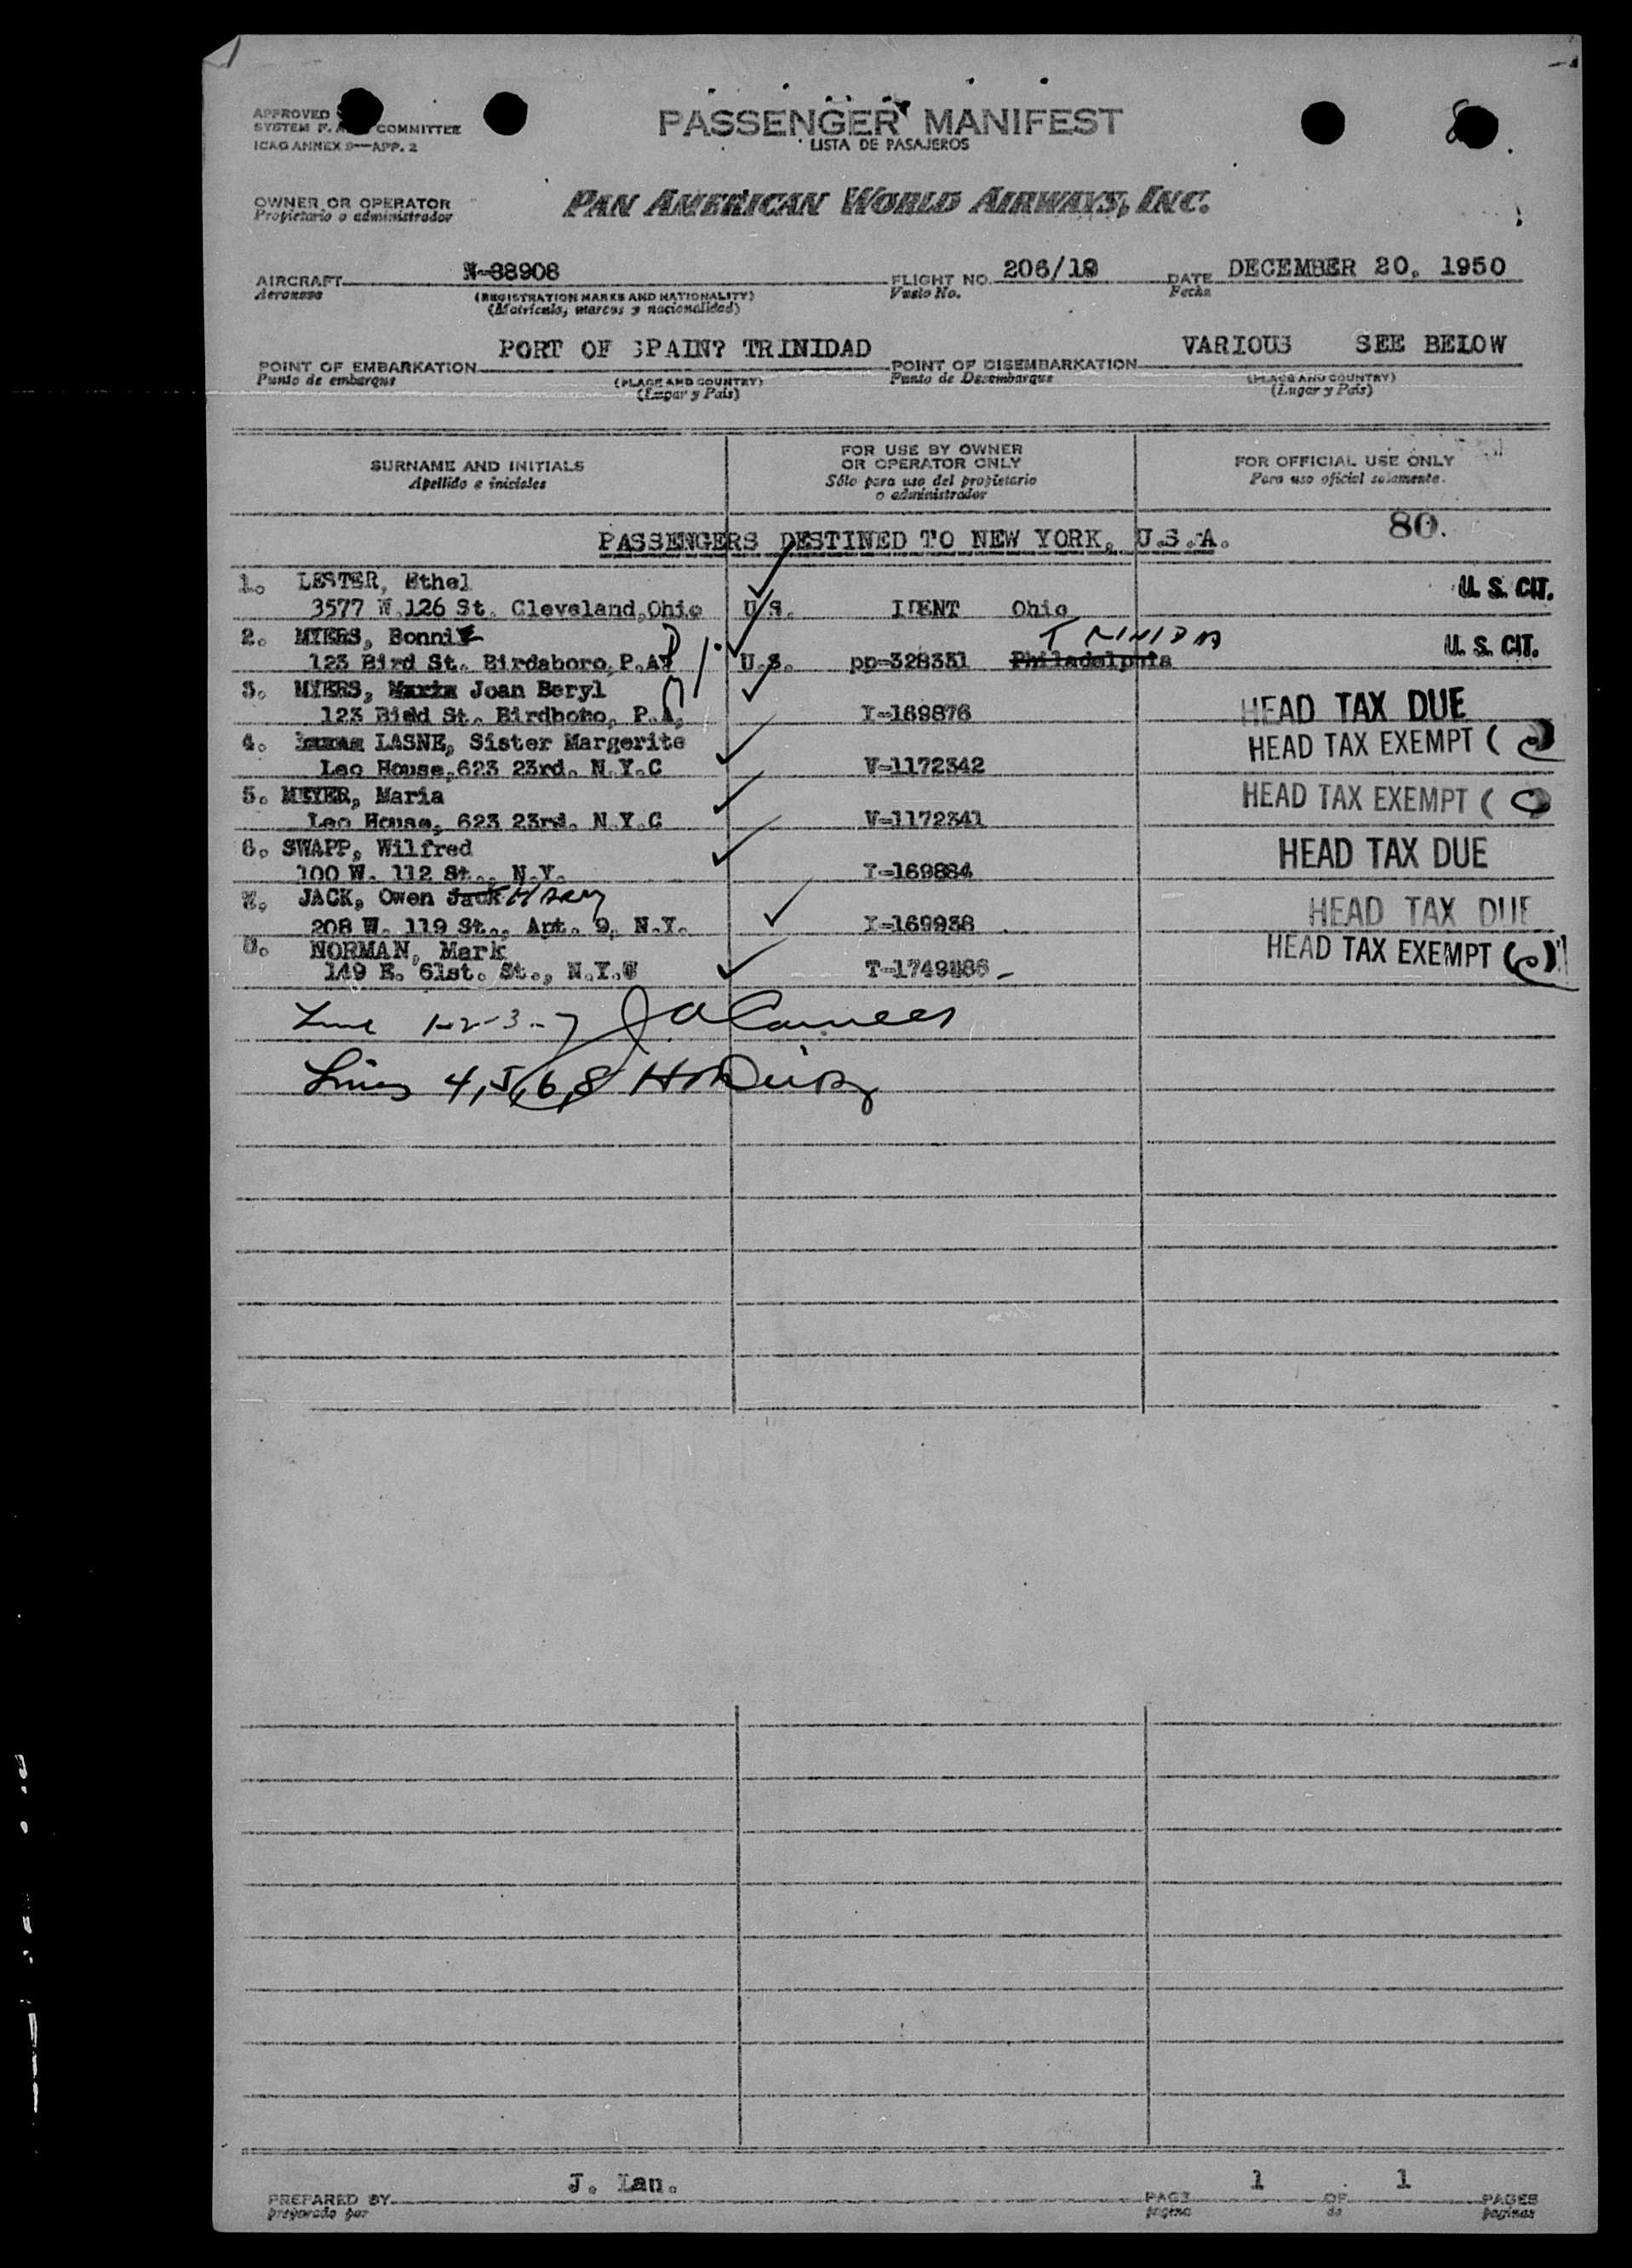 APPROVED
SYSTEM F. A. COMMITTEE
ICAO ANNEX 9—APP. 2
PASSENGER MANIFEST
LISTA DE PASAJEROS
OWNER OR OPERATOR
Propietario o administrador
PAN AMERICAN WORLD AIRWAYS, INC.
AIRCRAFT N-88908 FLIGHT NO. 206/19 DATE DECEMBER 20, 1950
Aeronave (REGISTRATION MARKS AND NATIONALITY) Vuelo No. Fecha
(Matrícula, marcas y nacionalidad)
POINT OF EMBARKATION PORT OF SPAIN? TRINIDAD POINT OF DISEMBARKATION VARIOUS SEE BELOW
Punto de embarque (PLACE AND COUNTRY) Punto de Desembarque (PLACE AND COUNTRY)
(Lugar y País) (Lugar y País)
SURNAME AND INITIALS
Apellido e iniciales
FOR USE BY OWNER
OR OPERATOR ONLY
Sólo para uso del propietario
o administrador
FOR OFFICIAL USE ONLY
Para uso oficial solamente.
PASSENGERS DESTINED TO NEW YORK, U.S.A. 80.
1. LESTER, Ethel U. S. CIT.
3577 W.126 St. Cleveland,Ohio U.S. IDENT Ohio
2. MYERS, Bonnie TRINIDA U. S. CIT.
123 Bird St. Birdsboro, P.A. U.S. pp-328331 Philadelphia
3. MYERS, Maria Joan Beryl HEAD TAX DUE
123 Bird St. Birdboro, P.A. I-169876
4. LASNE, Sister Margerite HEAD TAX EXEMPT (
Leo House,623 23rd. N.Y.C V-1172342
5. MEYER, Maria HEAD TAX EXEMPT (
Leo House, 623 23rd. N.Y.C V-1172341
6. SWAPP, Wilfred HEAD TAX DUE
100 W. 112 St., N.Y. I-169884
7. JACK, Owen Jack HEAD TAX DUE
208 W. 119 St., Apt. 9, N.Y. I-169938
8. NORMAN, Mark HEAD TAX EXEMPT ( )
149 E. 61st. St., N.Y. T-1749486
Line 1-2-3-7
Lines 4,5,6,8
PREPARED BY J. Lau. PAGE 1 OF 1 PAGES
preparado por pagina de paginas